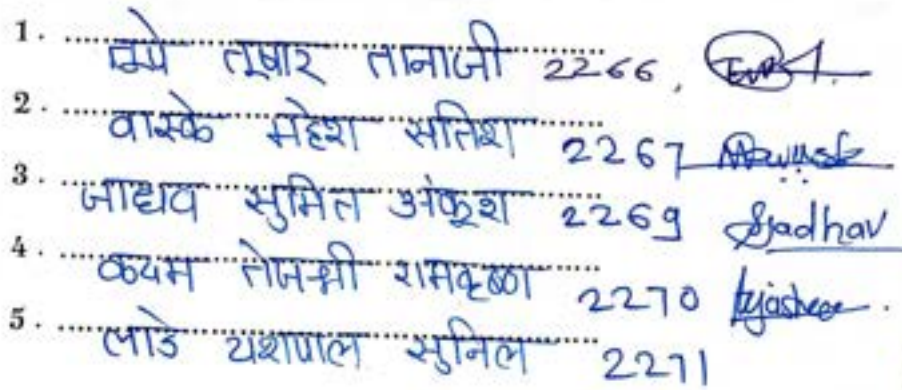 1. टिमे तूषार तानाजी 2266,
2. वास्के महेश सतिश 2267
3. जाधव सुमित अंकूश 2269 Sjadhav
4. कदम तेजश्री रामकृष्ण 2270 tejashree.
5. लाड यशपाल सुनिल 2271